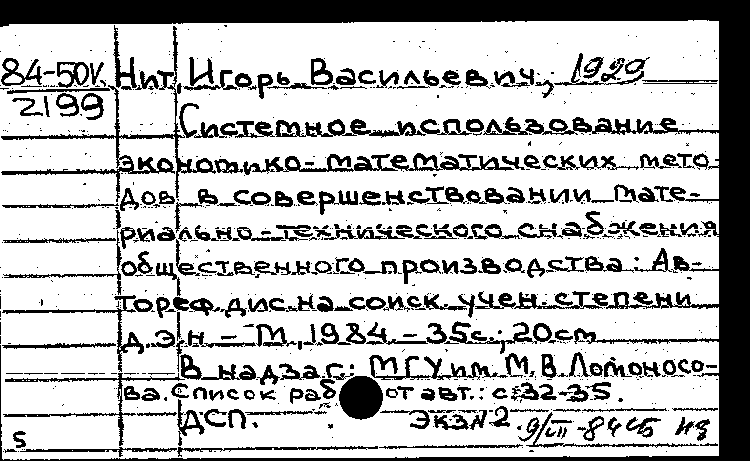 84-50V. Нит, Игорь Васильевич, 1929
2199
Системное использование
экономико-математических мето-
дов в совершенствовании мате-
риально-технического снабжения
общественного производства: Ав-
тореф. дис. на соиск. учен. степени
д.э.н - М, 1984. - 35с.; 20cm
В надзаг: МГУ им. М. В. Ломоносо-
ва. Список работ авт.: с. 32-35.
ДСП. ЭКЗ№2. 9/VII-84
S